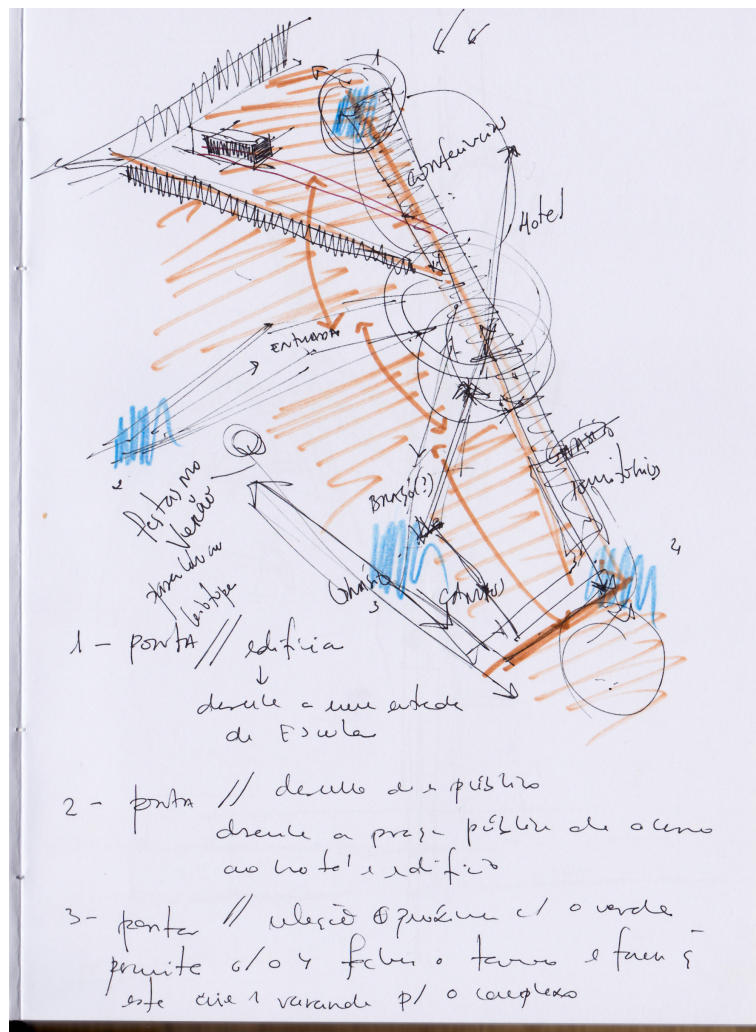 1
conferência
Hotel
ENTRADA
2
Festas no
Verão
BRAÇO(?)
GINÁSIO
Dormitórios
4
Ginásio
3
1 - PONTA // edifício
desenha a uma entrada
da Escola
2 - PONTA // desenho do e público
desenha a praça pública de acesso
ao hotel e edifício
3 - ponta // relação próxima c/ o verde
permite c/ o 4 fechar o terreno e fazer q
este crie 1 varanda p/ o complexo